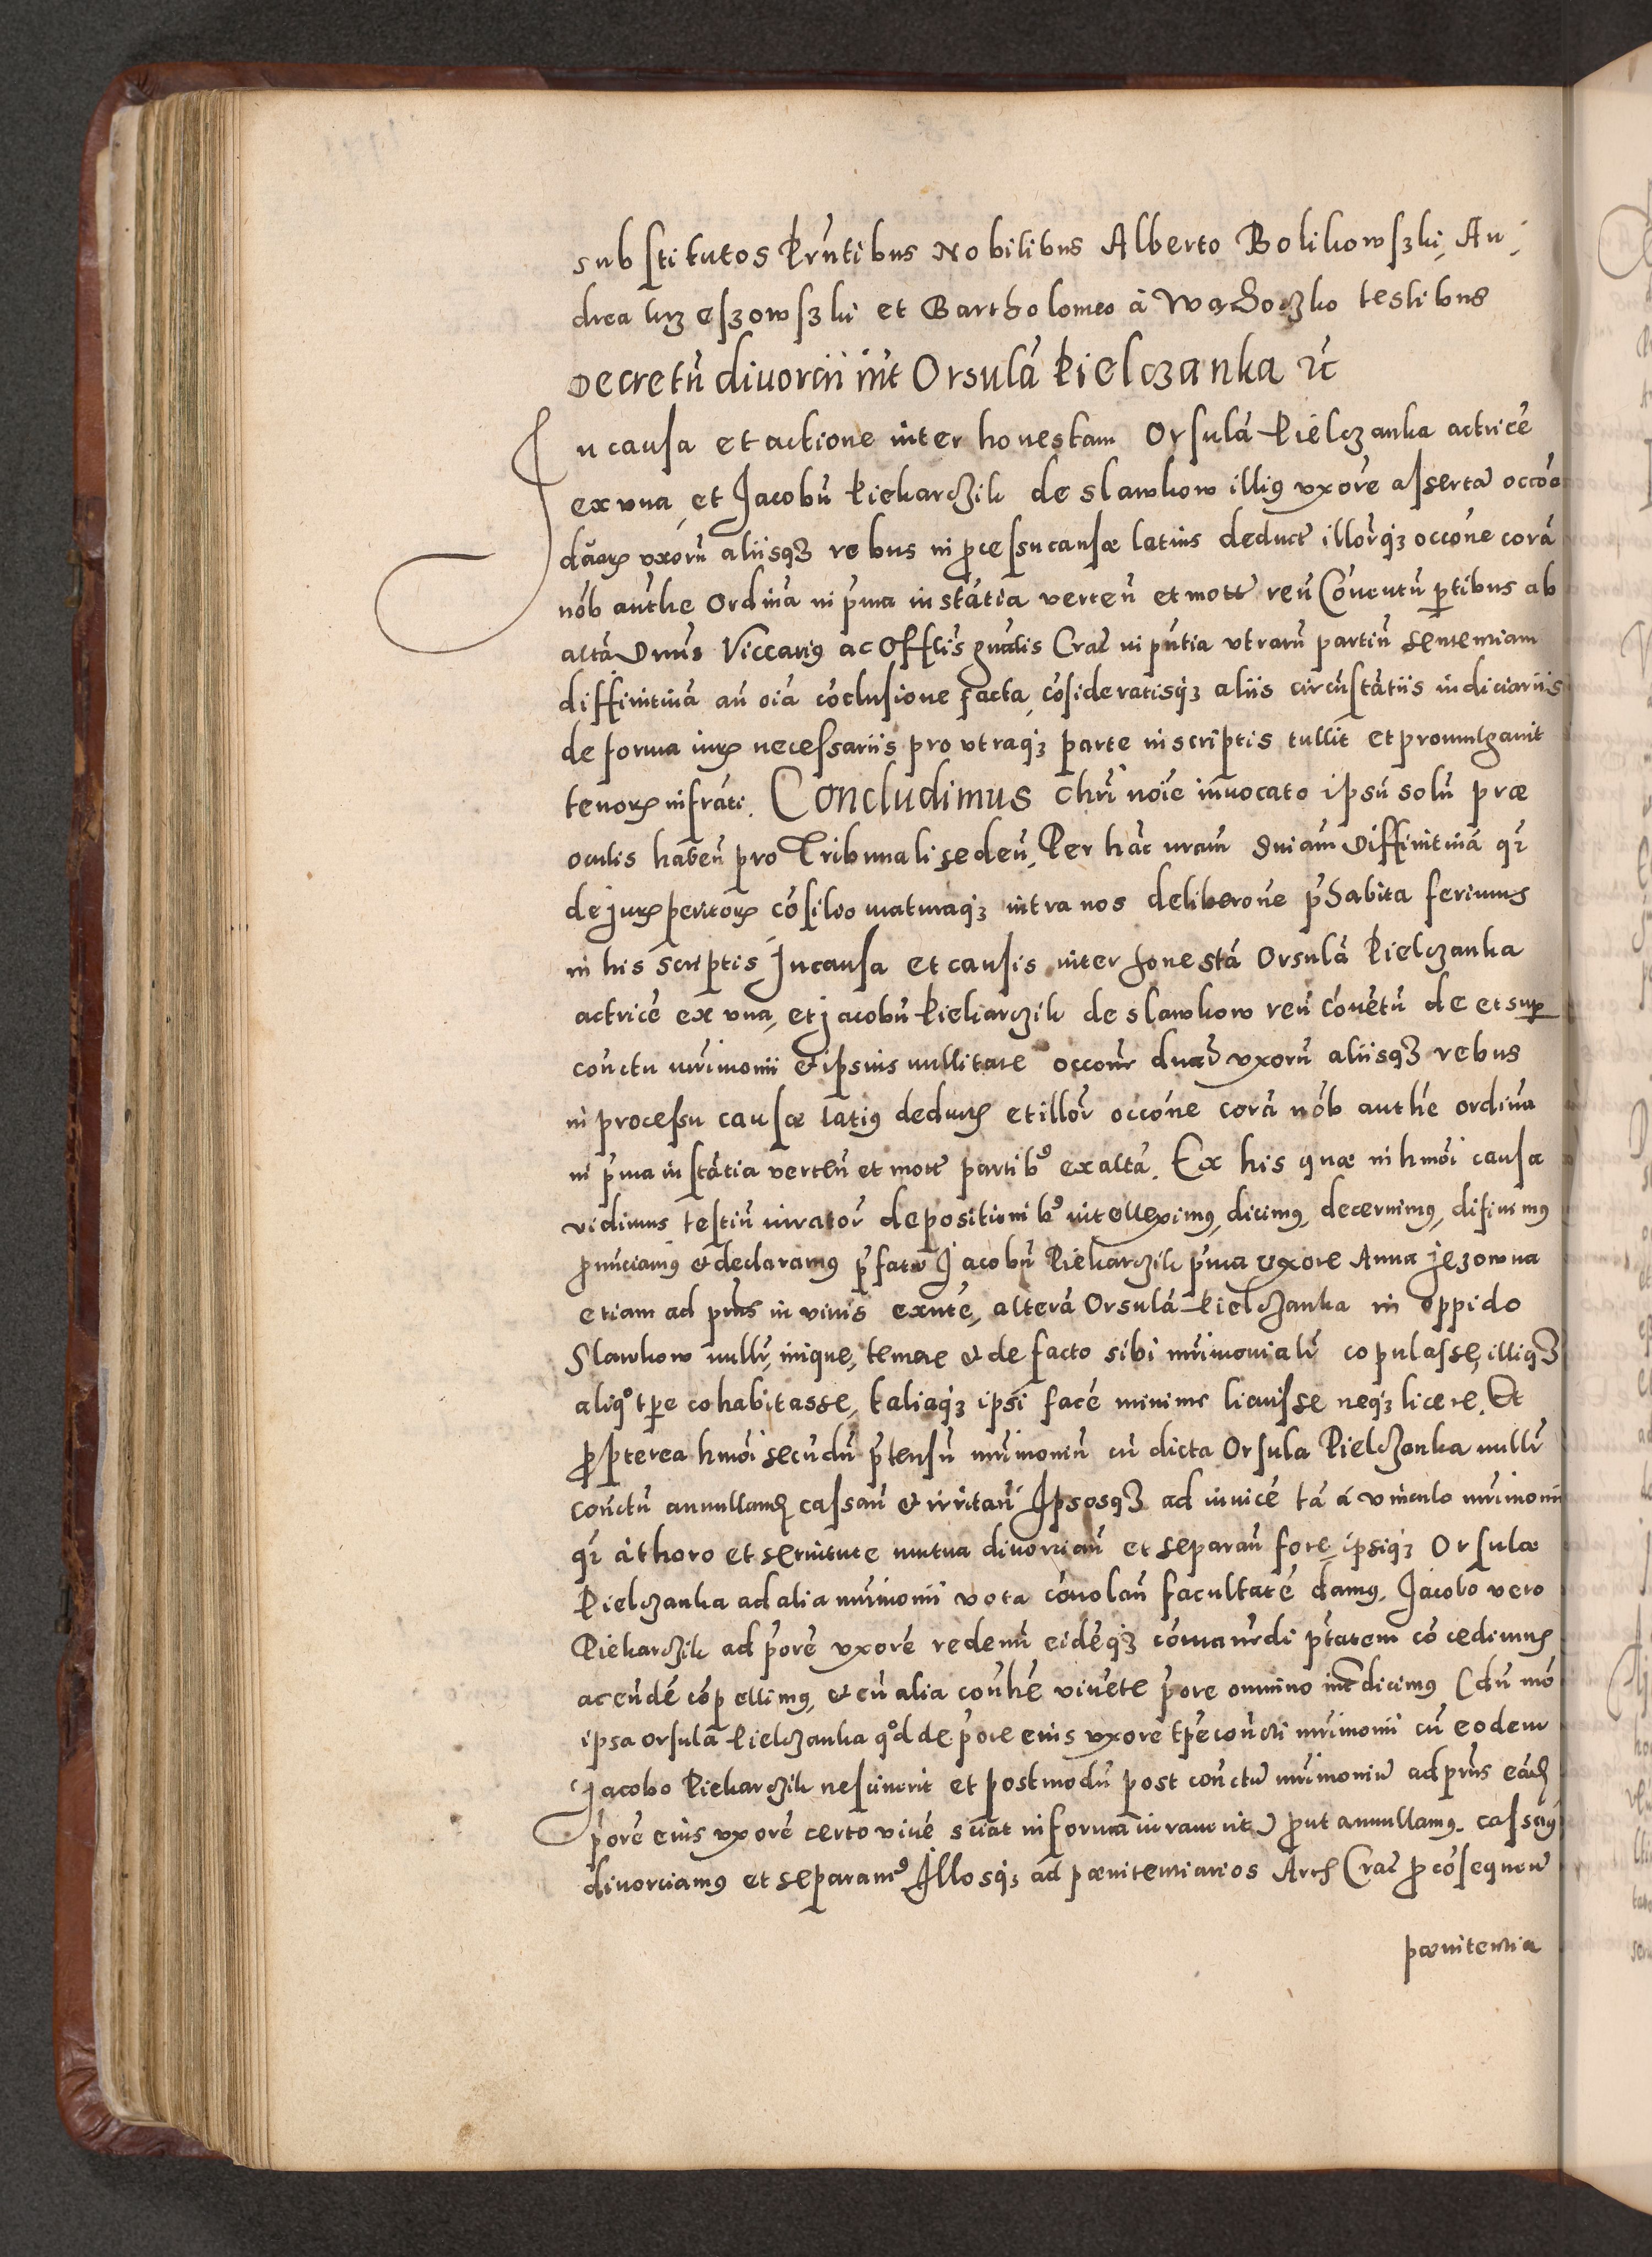 substitutos Prntibus Nobilibus Alberto Bolikowski, An
drea krzeszowski et Bartholomeo à Wąchoczko testibus
Decretū divorcii int Orsulā Pielczanka ꝛc
In causa et actione inter honestam Orsulā Pielczanka actricē
ex vna, et Jacobū Piekarczik de Slawkow illiꝰ vxorē assertā occōe
duaꝝ vxorū aliisqꝫ rebus in ꝓcessu causæ latius deduct illorqꝫ occōne corā
nōb authe Ordinā in p̄ma instātia verteñ et mott reū Conventū ꝑtibus ab
altā Dnus Viccariꝰ ac Offlis gnālis Crac in pntia vtrarū partiū sententiam
diffinitivā añ oīa cōclusione facta, cōsideratisqꝫ aliis circūstātiis iudiciariis
de forma iuꝝ necessariis pro vtraqꝫ parte in scriptis tullit et promulgavit
tenoꝝ infrāti. Concludimus Chrī noīe invocato ipsū solū præ
oculis habeñ pro Tribunali sedeñ, Per hāc nram sniam Diffinitivā qꝫ
de juꝝ peritoꝝ cōsilio maturaqꝫ intra nos deliberōne p̄habita ferimus
in his scriptis In causa et causis inter honestā Orsulā Pielczanka
actricē ex vna, et Jacobū Piekarczik de Slawkow reū Cōvētū de et suꝑ
conctu mrimonii & ipsius nullitate occōne duaꝝ vxorū aliisqꝫ rebus
in processu causæ latiꝰ deductꝭ et illor occōne corā nōb authē ordina
in p̄ma instātia verteñ et mott partibꝰ ex altā. Ex his quæ in hmōi causa
vidimus testiū iurator depositionibꝰ intelleximꝰ, dicimꝰ, decernimꝰ, difinimꝰ
ꝓnūciamꝰ & declaramꝰ p̄fatū Jacobū Piekarczik p̄ma vxore Anna Jezowna
etiam ad pñs in vivis exñte, alterā Orsulā Pielczanka in oppido
Slawkow nullr, inique, temere & de facto sibi mrimonialr copulasse, illiqꝫ
aliqº tꝑe cohabitasse, taliaqꝫ ipsi facē minime licuisse neqꝫ licere. Et
ꝓpterea hmōi secūdū p̄tensū mrimoniū cū dicta Orsula Pielczanka nullr
conctū annullanꝭ cassañ & irritañ Ipsosqꝫ ad invicē tā à vinculo mrimonii
qꝫ à thoro et servitute mutua divorciañ et separañ fore, ipsiqꝫ Orsulæ
Pielczanka ad alia mrimonii vota cōvolañ facultatē damꝰ. Jacobo vero
Piekarczik ad p̄orē vxorē redeuñ eidēqꝫ cōmanēdi ptatem cōcedimus
ac eūdē cōpellimꝰ, & cū alia coñhē vivēte p̄ore omnino intdicimꝰ (dū mō
ipsa Orsulā Pielczanka qºd de p̄ore eius vxorē tꝑe concti mrimonii cū eodem
Jacobo Piekarczik nesciverit et postmodū post conctū mrimoniū ad pñs eādꝭ
p̄orē eius vxorē certo vivē sciat in forma iuraverit) ꝓut annullamꝰ. cassaꝰ
divorciamꝰ et separamꝰ Illosqꝫ ad pœnitentiarios Arch Crac ꝓ cōsequeñ
pœnitentia